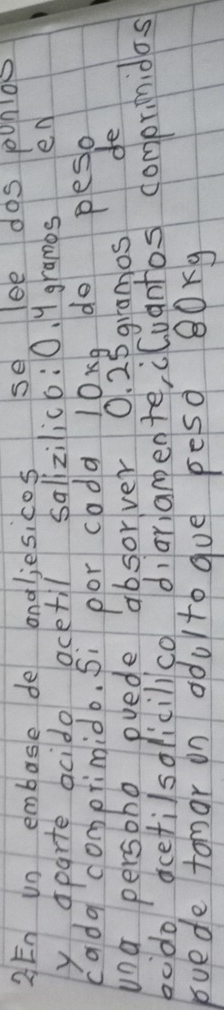 2 En un embase de analjesicos se lee dos puntos
y aparte acido acetil salizilico: 0.4 gramos en
cada comprimido. Si por cada 10 kg de peso
una persona puede absorver 0.25 gramos de
acido acetilsalicilico diariamente, ¿Cuantos comprimidos
puede tomar un adulto que peso 80 kg